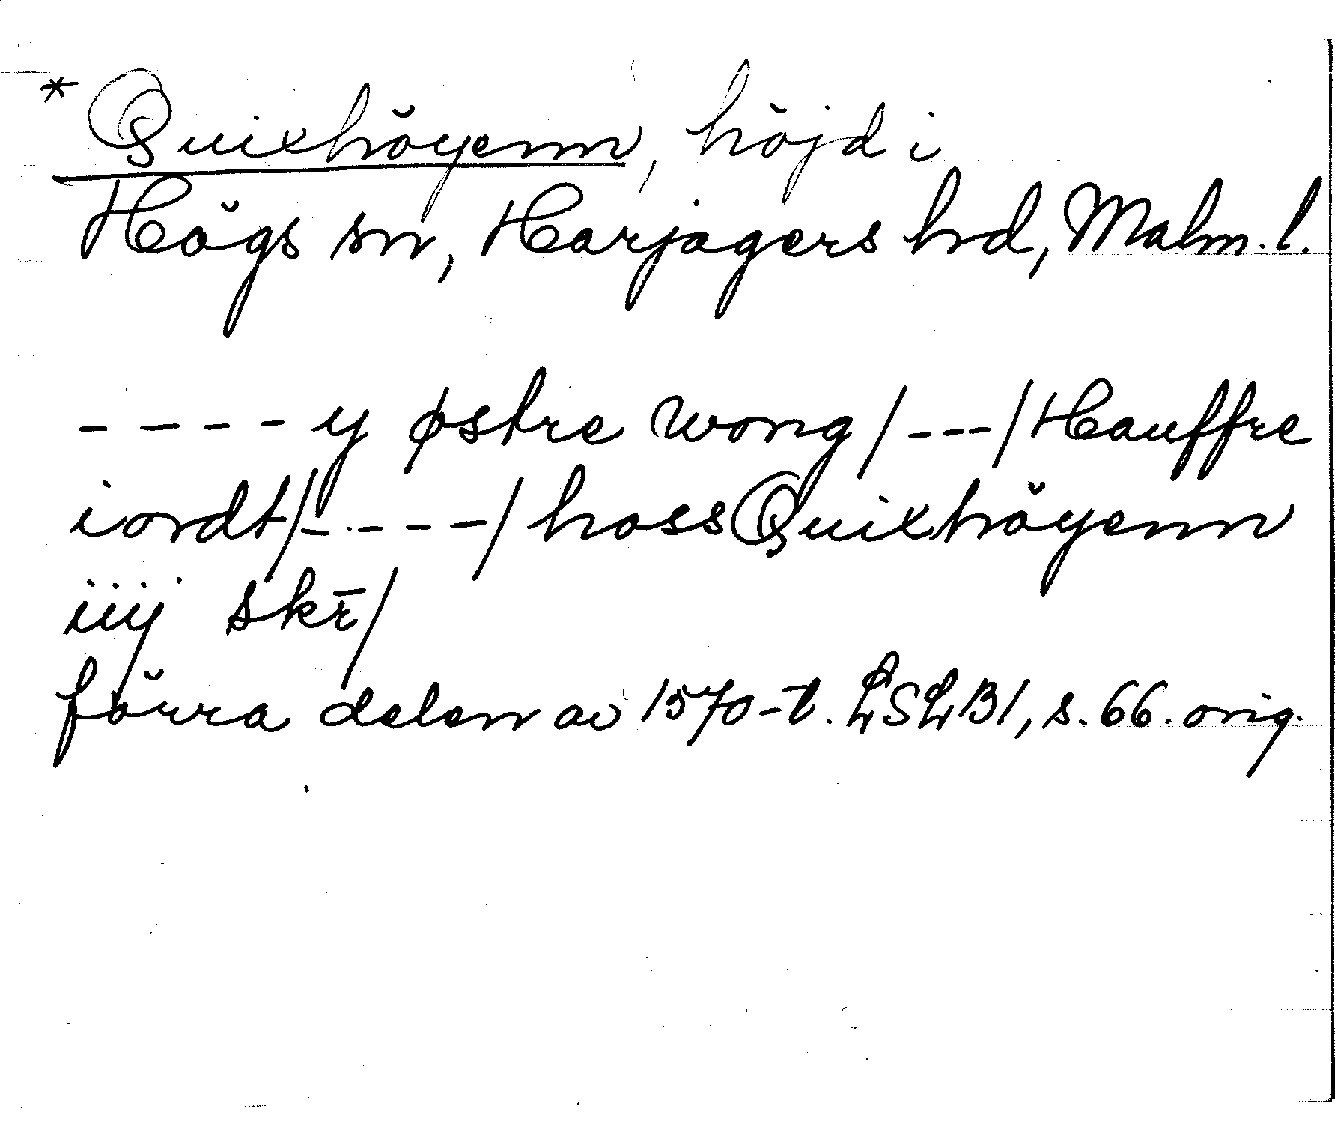 * Quixhöyenn, höjd i
Högs sn, Harjagers hrd, Malm. l.
---- y østre wong/---/Hauffre
iordt/----/hoss Quixhöyenn
iiij skr̄/
förra delen av 1570-t. LSLB1, s. 66. orig.